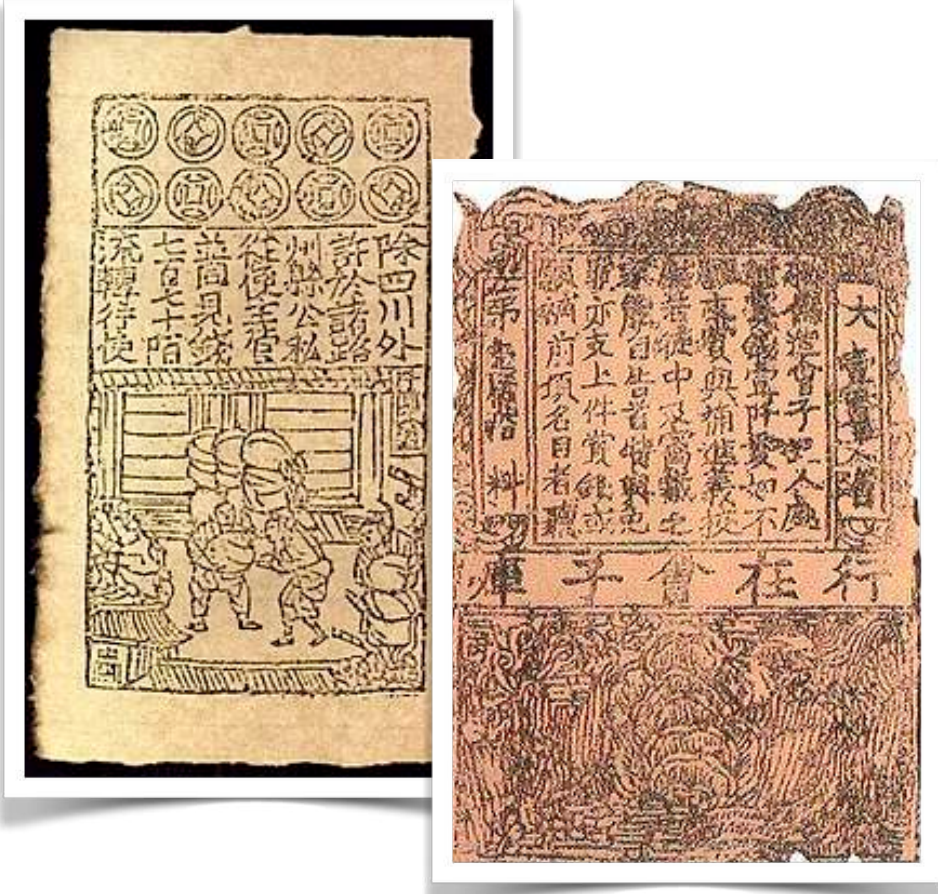 除四川外
許於諸路
州縣公私
從便主管
並同見錢
七百七十陌
流轉行使
大壹貫文省
偽造會子犯人處
賞錢壹阡貫如不
支賞與補進義校
若徒中及窩藏之
家能自告首特與免
罪亦支上件賞錢或
願補前項名目者聽
第 料
行在會子庫